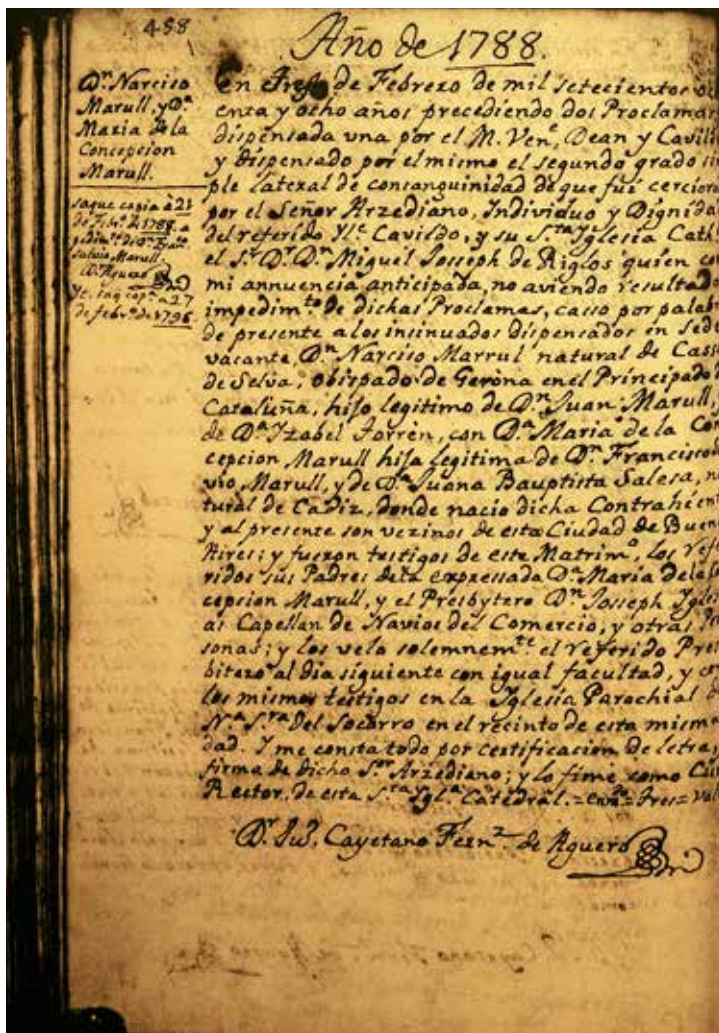 488
Año de 1788.
Dn. Narciso
Marull, y Da.
Maria de la
Concepcion
Marull.
saque copia â 21
de Febo. de 1788. a
pedimto. de Dn. Franco.
Salvio Marull.
Dr. Aguero
Yt. saq. copa. a 27
de febro. de 1796
En Tres de Febrero de mil setecientos och
enta y ocho años precediendo dos Proclamas
dispensada vna por el M. Vene. Dean y Cavild
y dispensado por el mismo el segundo grado sim
ple lateral de consanguinidad de que fui cerciora
por el Señor Arzediano, Individuo y Dignida
del referido Yle. Cavildo, y su Sta. Yglesia Cath
el Sr. Dr. Dn. Miguel Josseph de Riglos quien co
mi annuencia anticipada, no aviendo resultado
impedimto. de dichas Proclamas, casso por palab
de presente a los insinuados dispensados en Sede
vacante, Dn. Narciso Marrul natural de Cass
de Selva, obispado de Gerona en el Principado
Cataluña, hijo legitimo de Dn. Juan Marull,
de Da. Yzabel Torren, con Da. Maria de la Con
cepcion Marull hija legitima de Dn. Francisco
vio Marull, y de Da. Juana Bauptista Salesa, na
tural de Cadiz, donde nacio dicha Contrahent
y al presente son vezinos de esta Ciudad de Buen
Aires; y fueron testigos de este Matrimo. los refe
ridos sus Padres de la expressada Da. Maria de la
cepcion Marull, y el Presbytero Dn. Josseph Ygles
as Capellan de Navios del Comercio, y otras Per
sonas; y los velo solemnemte. el referido Pres
bitero al dia siguiente con igual facultad, y con
los mismos testigos en la Yglesia Parochial
Na. Sra. del Socorro en el recinto de esta misma
dad. Y me consta todo por certificacion de letra,
firma de dicho Sor. Arzediano; y lo firmè como Cu
Rector, de esta Sta. Ygla. Catedral.=enmda.=Tres=Val
Dr. Jua. Cayetano Fernz. de Aguero